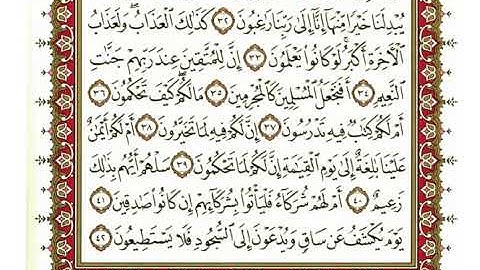 يُبْدِلَنَا خَيْرًا مِّنْهَآ إِنَّآ إِلَىٰ رَبِّنَا رَٰغِبُونَ ٣٢ كَذَٰلِكَ ٱلْعَذَابُ ۖ وَلَعَذَابُ
ٱلْـَٔاخِرَةِ أَكْبَرُ ۚ لَوْ كَانُوا۟ يَعْلَمُونَ ٣٣ إِنَّ لِلْمُتَّقِينَ عِندَ رَبِّهِمْ جَنَّٰتِ
ٱلنَّعِيمِ ٣٤ أَفَنَجْعَلُ ٱلْمُسْلِمِينَ كَٱلْمُجْرِمِينَ ٣٥ مَا لَكُمْ كَيْفَ تَحْكُمُونَ ٣٦
أَمْ لَكُمْ كِتَٰبٌ فِيهِ تَدْرُسُونَ ٣٧ إِنَّ لَكُمْ فِيهِ لَمَا تَخَيَّرُونَ ٣٨ أَمْ لَكُمْ أَيْمَٰنٌ
عَلَيْنَا بَٰلِغَةٌ إِلَىٰ يَوْمِ ٱلْقِيَٰمَةِ ۙ إِنَّ لَكُمْ لَمَا تَحْكُمُونَ ٣٩ سَلْهُمْ أَيُّهُم بِذَٰلِكَ
زَعِيمٌ ٤٠ أَمْ لَهُمْ شُرَكَآءُ فَلْيَأْتُوا۟ بِشُرَكَآئِهِمْ إِن كَانُوا۟ صَٰدِقِينَ ٤١
يَوْمَ يُكْشَفُ عَن سَاقٍ وَيُدْعَوْنَ إِلَى ٱلسُّجُودِ فَلَا يَسْتَطِيعُونَ ٤٢